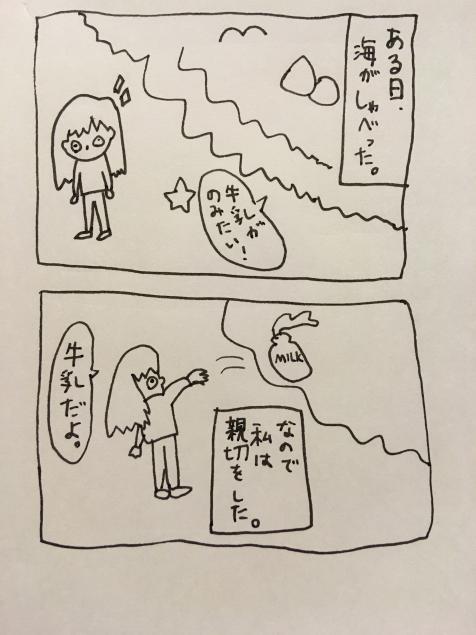 ある日、
海がしゃべった。
牛乳が
のみたい！
MILK
なので
私は
親切をした。
牛乳だよ。